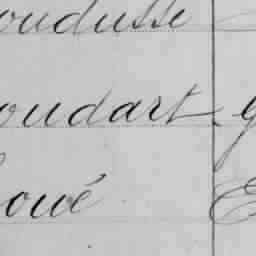 oudusse
oudart g
oué E